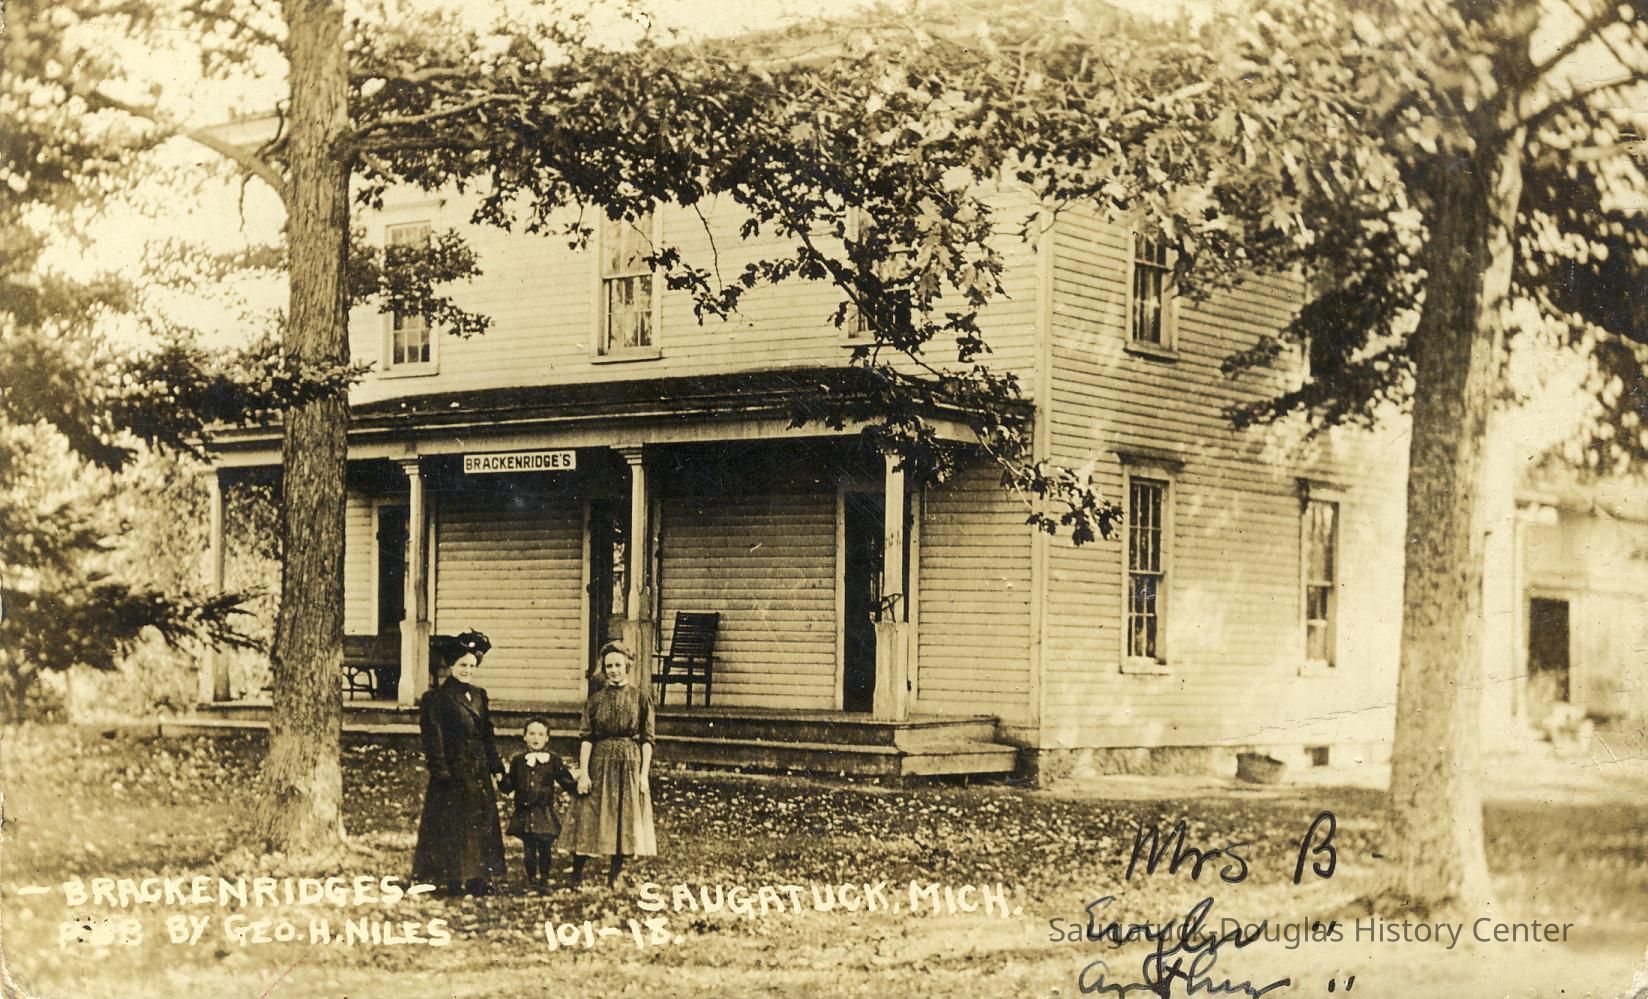 BRACKENRIDGE'S
- BRACKENRIDGES -
PUB BY GEO. H. NILES
SAUGATUCK, MICH.
101-18.
Mrs B -
Evelyn "
Arthur "
Saugatuck-Douglas History Center